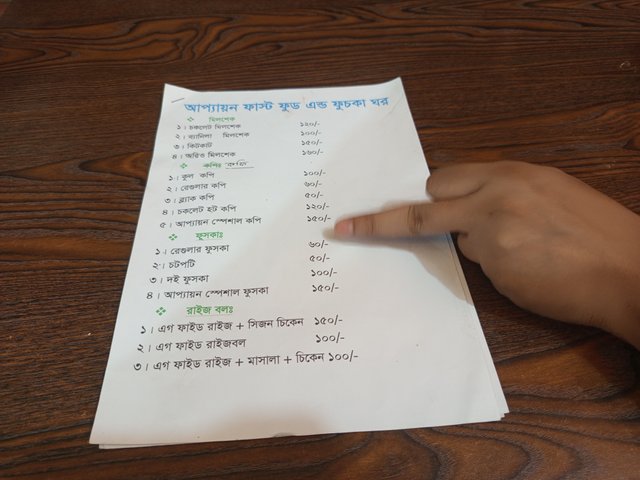 আপ্যায়ন ফাস্ট ফুড এন্ড ফুচকা ঘর
মিলশেক
১। চকলেট মিলশেক ১২০/-
২। ব্যানিলা মিলশেক ১০০/-
৩। কিটকাট ১৫০/-
৪। অরিও মিলশেক ১৬০/-
কপিঃ কফি
১। কুল কপি ১০০/-
২। রেগুলার কপি ৬০/-
৩। ব্ল্যাক কপি ৫০/-
৪। চকলেট হট কপি ১২০/-
৫। আপ্যায়ন স্পেশাল কপি ১৫০/-
ফুসকাঃ
১। রেগুলার ফুসকা ৬০/-
২। চটপটি ৫০/-
৩। দই ফুসকা ১০০/-
৪। আপ্যায়ন স্পেশাল ফুসকা ১৫০/-
রাইজ বলঃ
১। এগ ফাইড রাইজ + সিজন চিকেন ১৫০/-
২। এগ ফাইড রাইজবল ১০০/-
৩। এগ ফাইড রাইজ + মাসালা + চিকেন ১০০/-